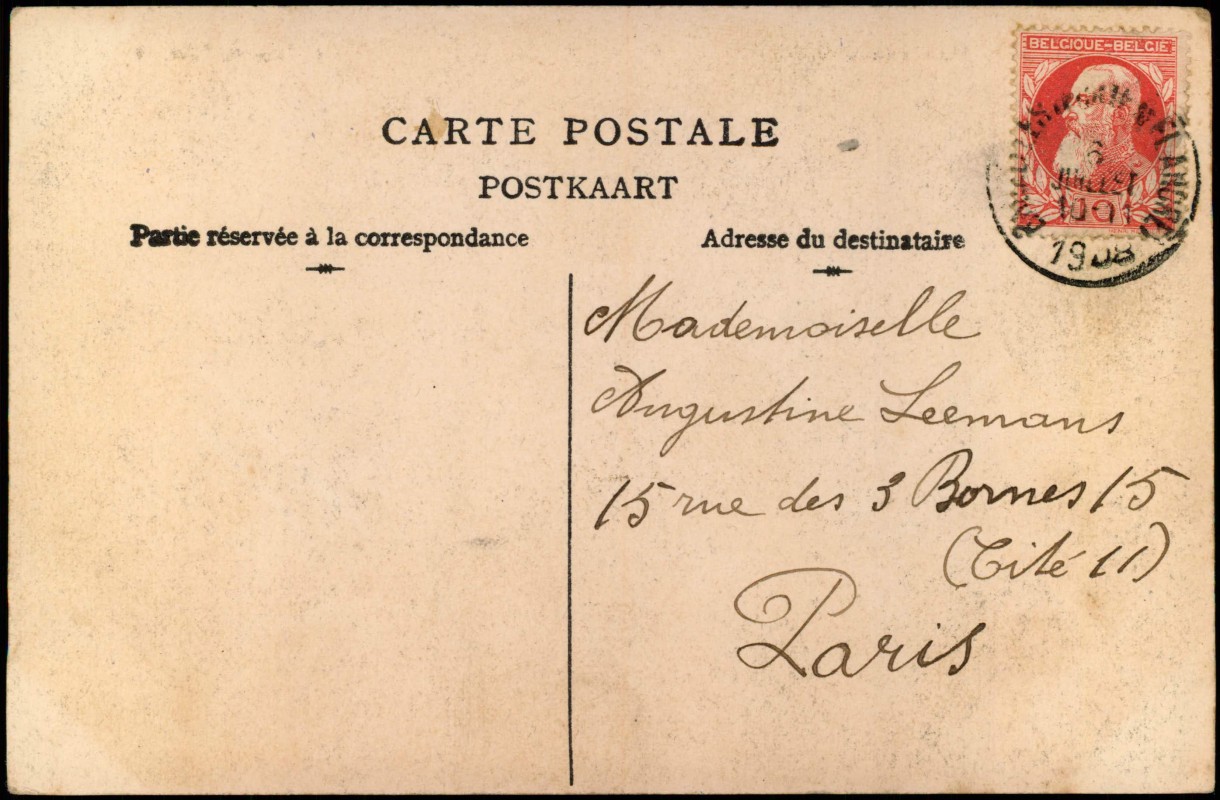 BELGIQUE-BELGIË
CARTE POSTALE
POSTKAART
6
JUILLET
10-11
1908
10
Partie réservée à la correspondance
Adresse du destinataire
Mademoiselle
Augustine Leemans
15 rue des 3 Bornes 15
(Cité 11)
Paris